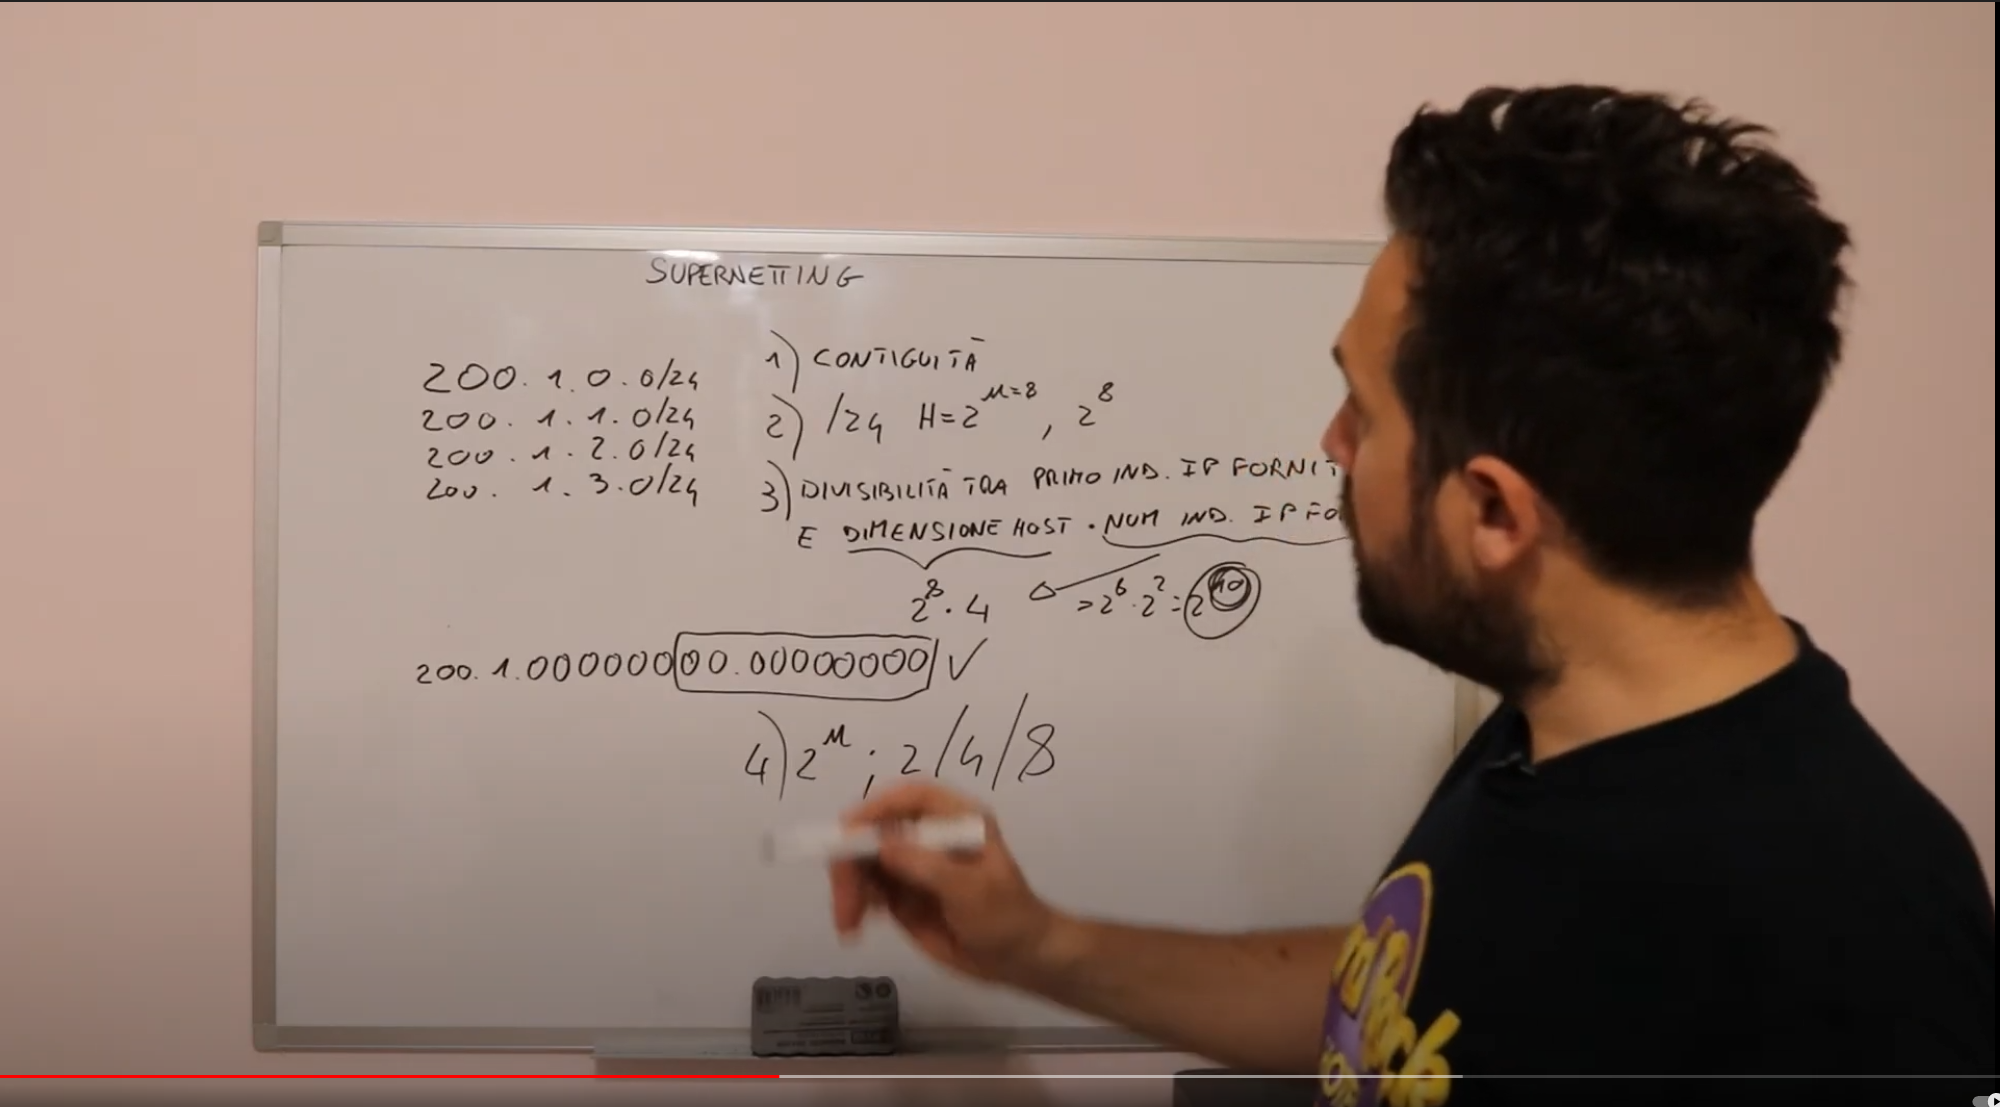 SUPERNETTING
200. 1. 0. 0/24
200. 1. 1. 0/24
200. 1. 2. 0/24
200. 1. 3. 0/24
1) CONTIGUITÀ
2) /24 H=2^n=8, 2^8
3) DIVISIBILITÀ TRA PRIMO IND. IP FORNIT
E DIMENSIONE HOST · NUM IND. IP FO
2^8 · 4 => 2^8 · 2^2 = 2^10
200. 1. 00000000.00000000 ✓
4) 2^n ; 2/4/8